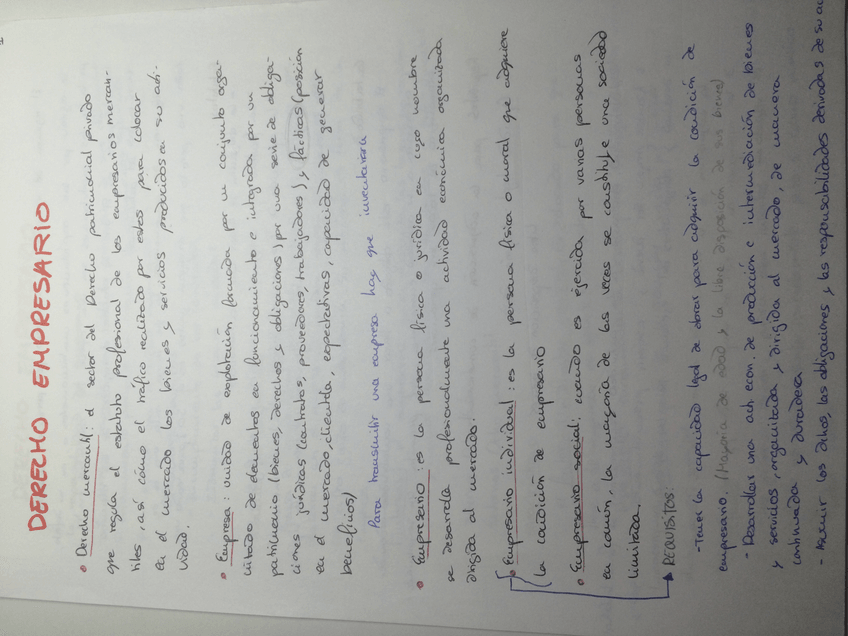 DERECHO EMPRESARIO
• Derecho mercantil: el sector del Derecho patrimonial privado
que regula el estatuto profesional de los empresarios mercan-
tiles, así cómo el tráfico realizado por estos para colocar
en el mercado los bienes y servicios producidos en su acti-
vidad.
• Empresa: unidad de explotación formada por un conjunto orga-
nizado de elementos en funcionamiento e integrada por un
patrimonio (bienes, derechos y obligaciones) por una serie de obliga-
ciones jurídicas (contratos, proveedores, trabajadores) y fácticas (posición
en el mercado, clientela, expectativas, capacidad de generar
beneficios)
Para transmitir una empresa hay que inventariarla
• Empresario: es la persona física o jurídica en cuyo nombre
se desarrolla profesionalmente una actividad económica organizada
dirigida al mercado.
• Empresario individual: es la persona física o moral que adquiere
la condición de empresario
• Empresario social: cuando es ejercida por varias personas
en común, la mayoría de las veces se constituye una sociedad
limitada.
REQUISITOS:
- Tener la capacidad legal de obrar para adquirir la condición de
empresario. (Mayoría de edad y la libre disposición de sus bienes)
- Desarrollar una act. econ. de producción e intermediación de bienes
y servicios, organizada y dirigida al mercado, de manera
continuada y duradera
- Asumir los dchos, las obligaciones y las responsabilidades derivadas de su ac